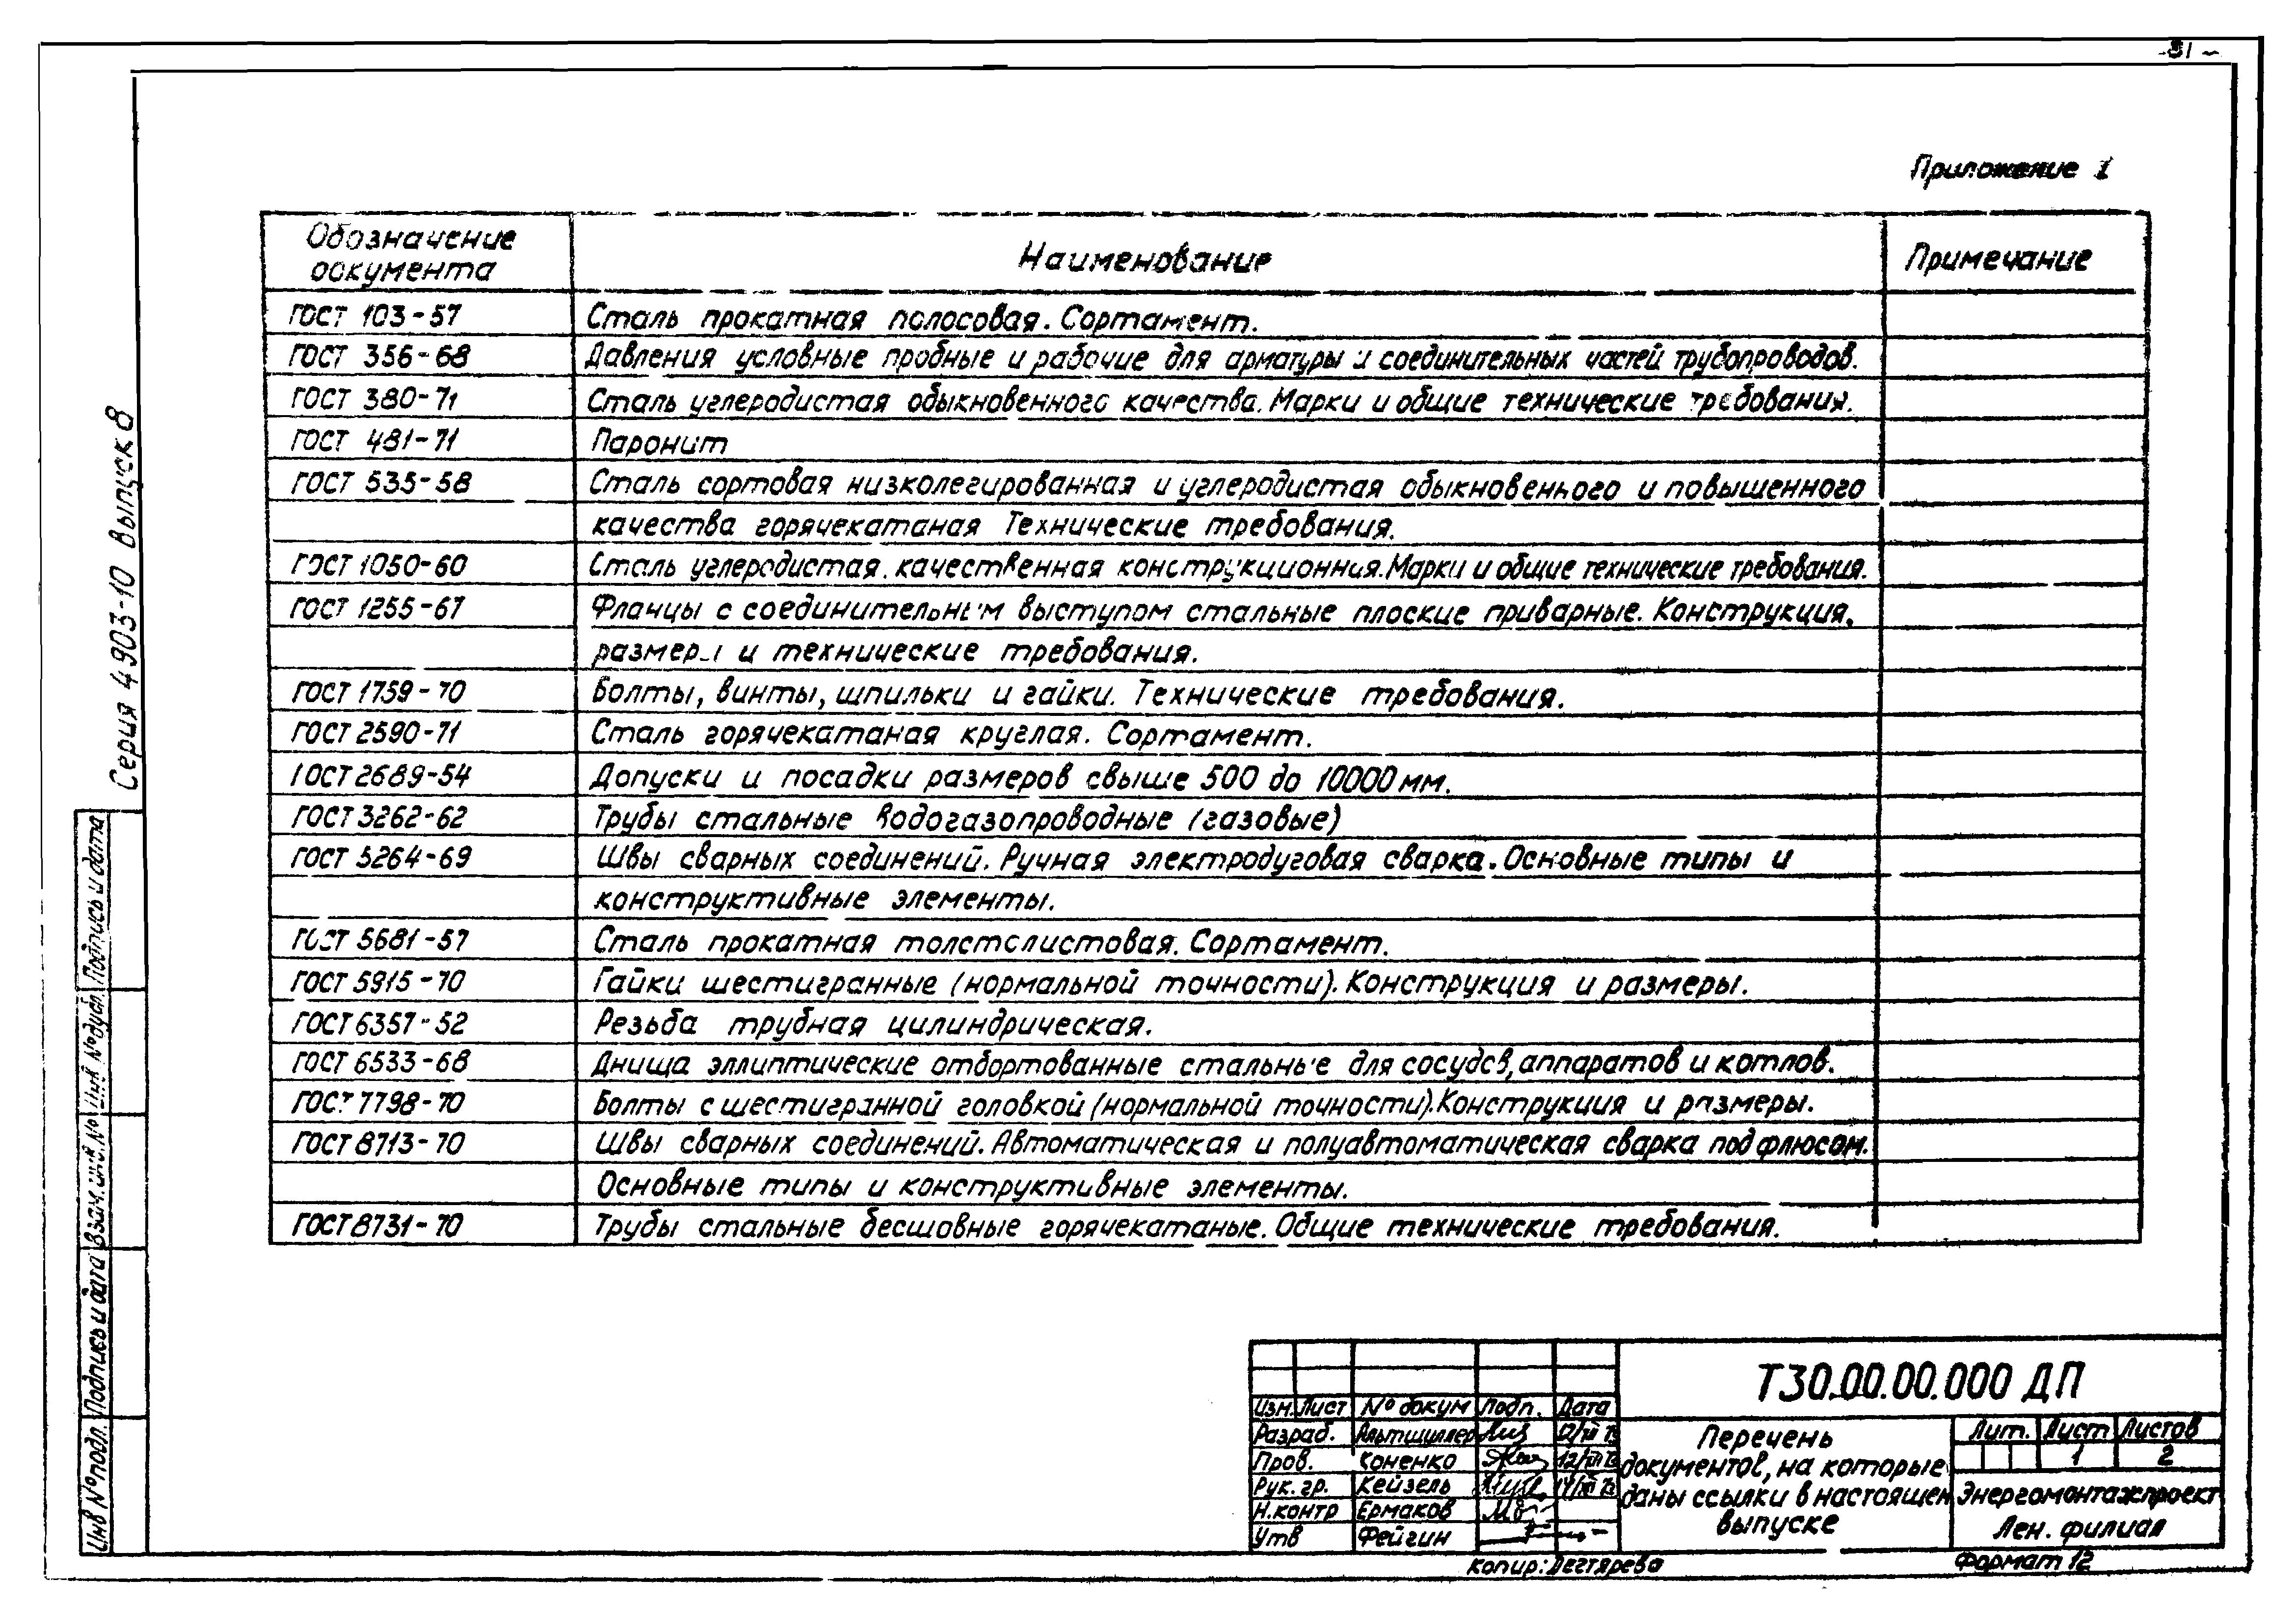 Приложение 1
Обозначение документа
Наименование
Примечание
ГОСТ 103-57 Сталь прокатная полосовая. Сортамент.
ГОСТ 356-68 Давления условные пробные и рабочие для арматуры и соединительных частей трубопроводов.
ГОСТ 380-71 Сталь углеродистая обыкновенного качества. Марки и общие технические требования.
ГОСТ 481-71 Паронит
ГОСТ 535-58 Сталь сортовая низколегированная и углеродистая обыкновенного и повышенного
качества горячекатаная Технические требования.
ГОСТ 1050-60 Сталь углеродистая. качественная конструкционния. Марки и общие технические требования.
ГОСТ 1255-67 Фланцы с соединительным выступом стальные плоские приварные. Конструкция,
размеры и технические требования.
ГОСТ 1759-70 Болты, винты, шпильки и гайки. Технические требования.
ГОСТ 2590-71 Сталь горячекатаная круглая. Сортамент.
ГОСТ 2689-54 Допуски и посадки размеров свыше 500 до 10000 мм.
ГОСТ 3262-62 Трубы стальные водогазопроводные (газовые)
ГОСТ 5264-69 Швы сварных соединений. Ручная электродуговая сварка. Основные типы и
конструктивные элементы.
ГОСТ 5681-57 Сталь прокатная толстолистовая. Сортамент.
ГОСТ 5915-70 Гайки шестигранные (нормальной точности). Конструкция и размеры.
ГОСТ 6357-52 Резьба трубная цилиндрическая.
ГОСТ 6533-68 Днища эллиптические отбортованные стальные для сосудов, аппаратов и котлов.
ГОСТ 7798-70 Болты с шестигранной головкой (нормальной точности). Конструкция и размеры.
ГОСТ 8713-70 Швы сварных соединений. Автоматическая и полуавтоматическая сварка под флюсом.
Основные типы и конструктивные элементы.
ГОСТ 8731-70 Трубы стальные бесшовные горячекатаные. Общие технические требования.
Серия 4 903-10 Выпуск 8
Подпись и дата
Инв № дубл.
Взам. инв. №
Подпись и дата
Инв № подл.
Т30.00.00.000 ДП
Изм. Лист № докум Подп. Дата
Разраб. Альтшиллер
Пров. Коненко
Рук. гр. Кейзель
Н.контр Ермаков
Утв Фейгин
Перечень
документов, на которые
даны ссылки в настоящем
выпуске
Лит. Лист Листов
1 2
Энергомонтажпроект
Лен. филиал
Копир: Дегтярева
Формат 12